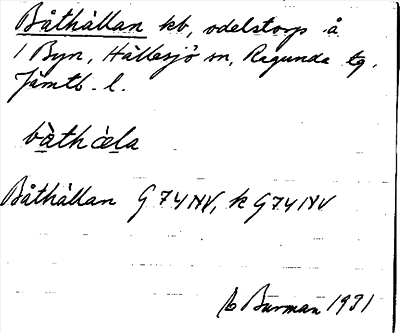 Båthällan kb, odelstorp å
1 Byn, Hällesjö sn, Ragunda tg.
Jämtl. l.
bàthàla
Båthällan G 74 NV, k G 74 NV
Burman 1931